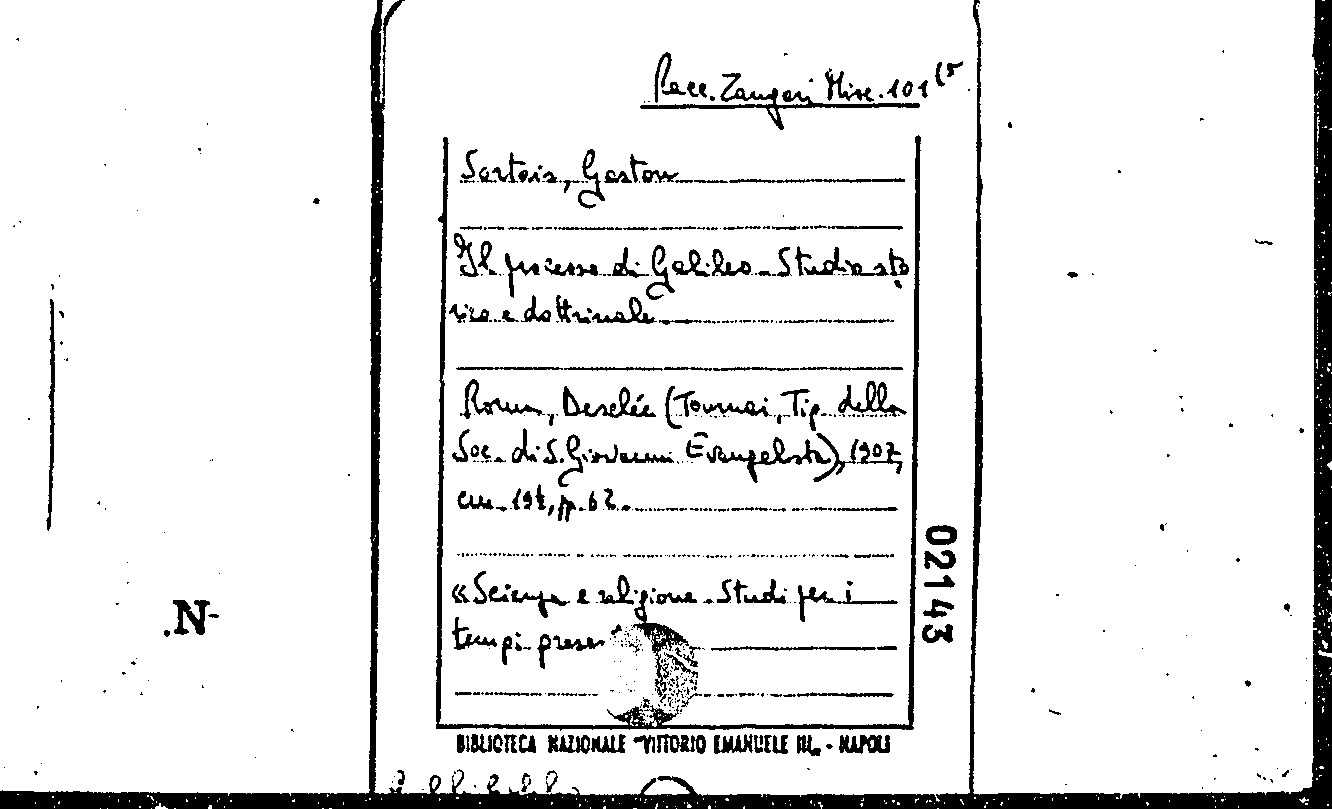 Racc. Zangari Misc. 101 (5
Sortais, Gaston
Il processo di Galileo. Studio sto
rico e dottrinale.
Roma, Desclée (Tournai, Tip. della
Soc. di S. Giovanni Evangelista), 1907,
cm. 19½, pp. 62.
«Scienza e religione. Studi per i
tempi prese
02143
.N-
BIBLIOTECA NAZIONALE "VITTORIO EMANUELE III„ - NAPOLI